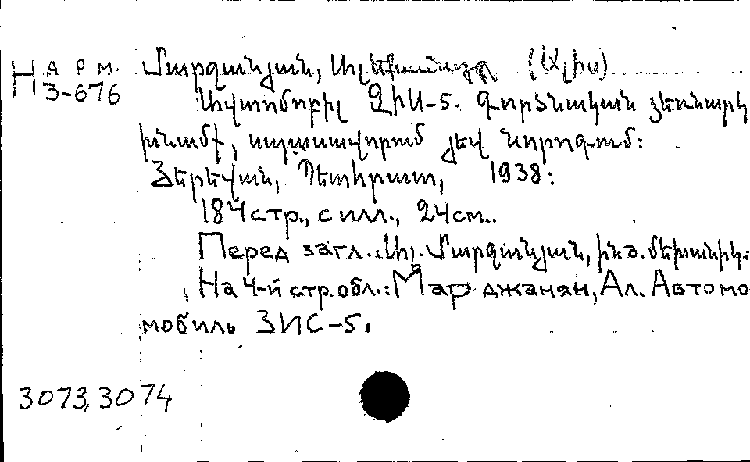 Н АРМ. 3-676
Մարջանյան, Ալեքսանդր (Ալիս)
Ավտոմոբիլ ԶԻՍ-5. Գործնական ձեռնարկ
խնամք, սպասավորում յեվ նորոգում:
Յերեվան, Պետհրատ, 1938:
184 стр., с илл., 24 см.
Перед загл.: Ալ. Մարջանյան, ինժ. մեխանիկ.
На 4-й стр. обл.: Марджанян, Ал. Автомо
мобиль ЗИС-5.
3073, 3074